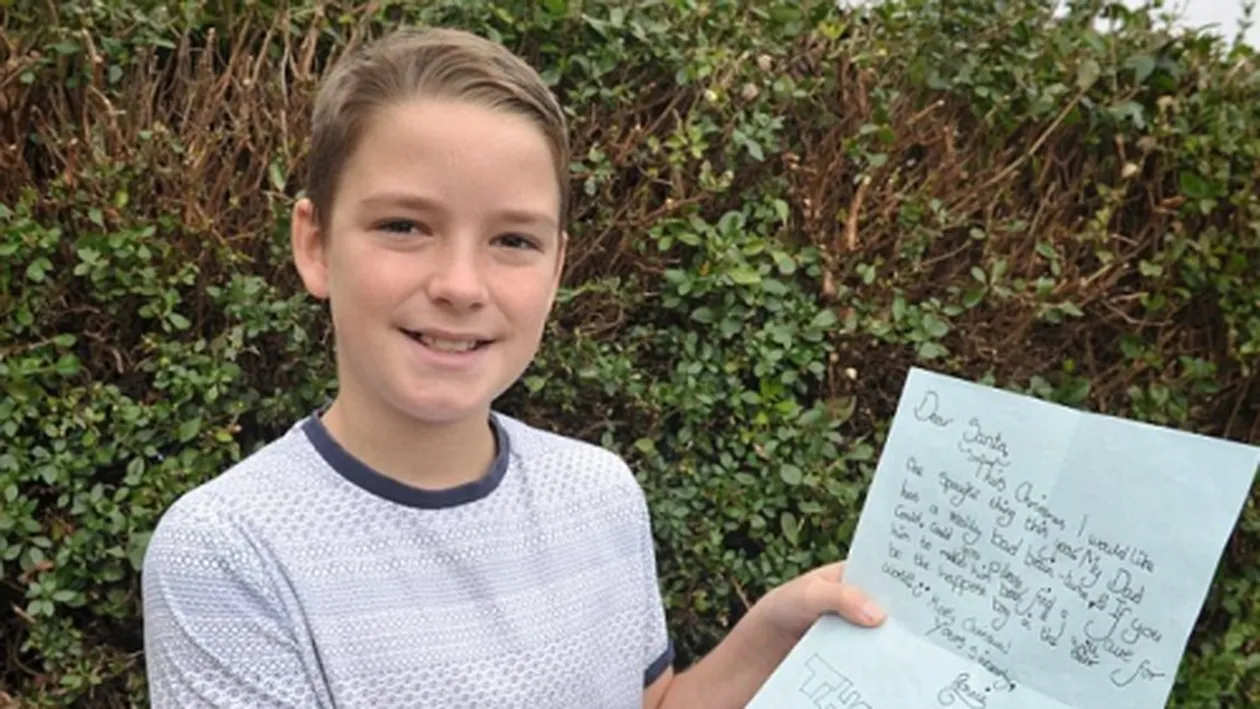 Dear Santa,
This Christmas I would like
one special thing this year. My Dad
has a really bad brain- If you
could could you please find a cure for
him to make him better, I will
be the happiest boy in the
world. Merry Christmas!
Yours sincerely,
THA